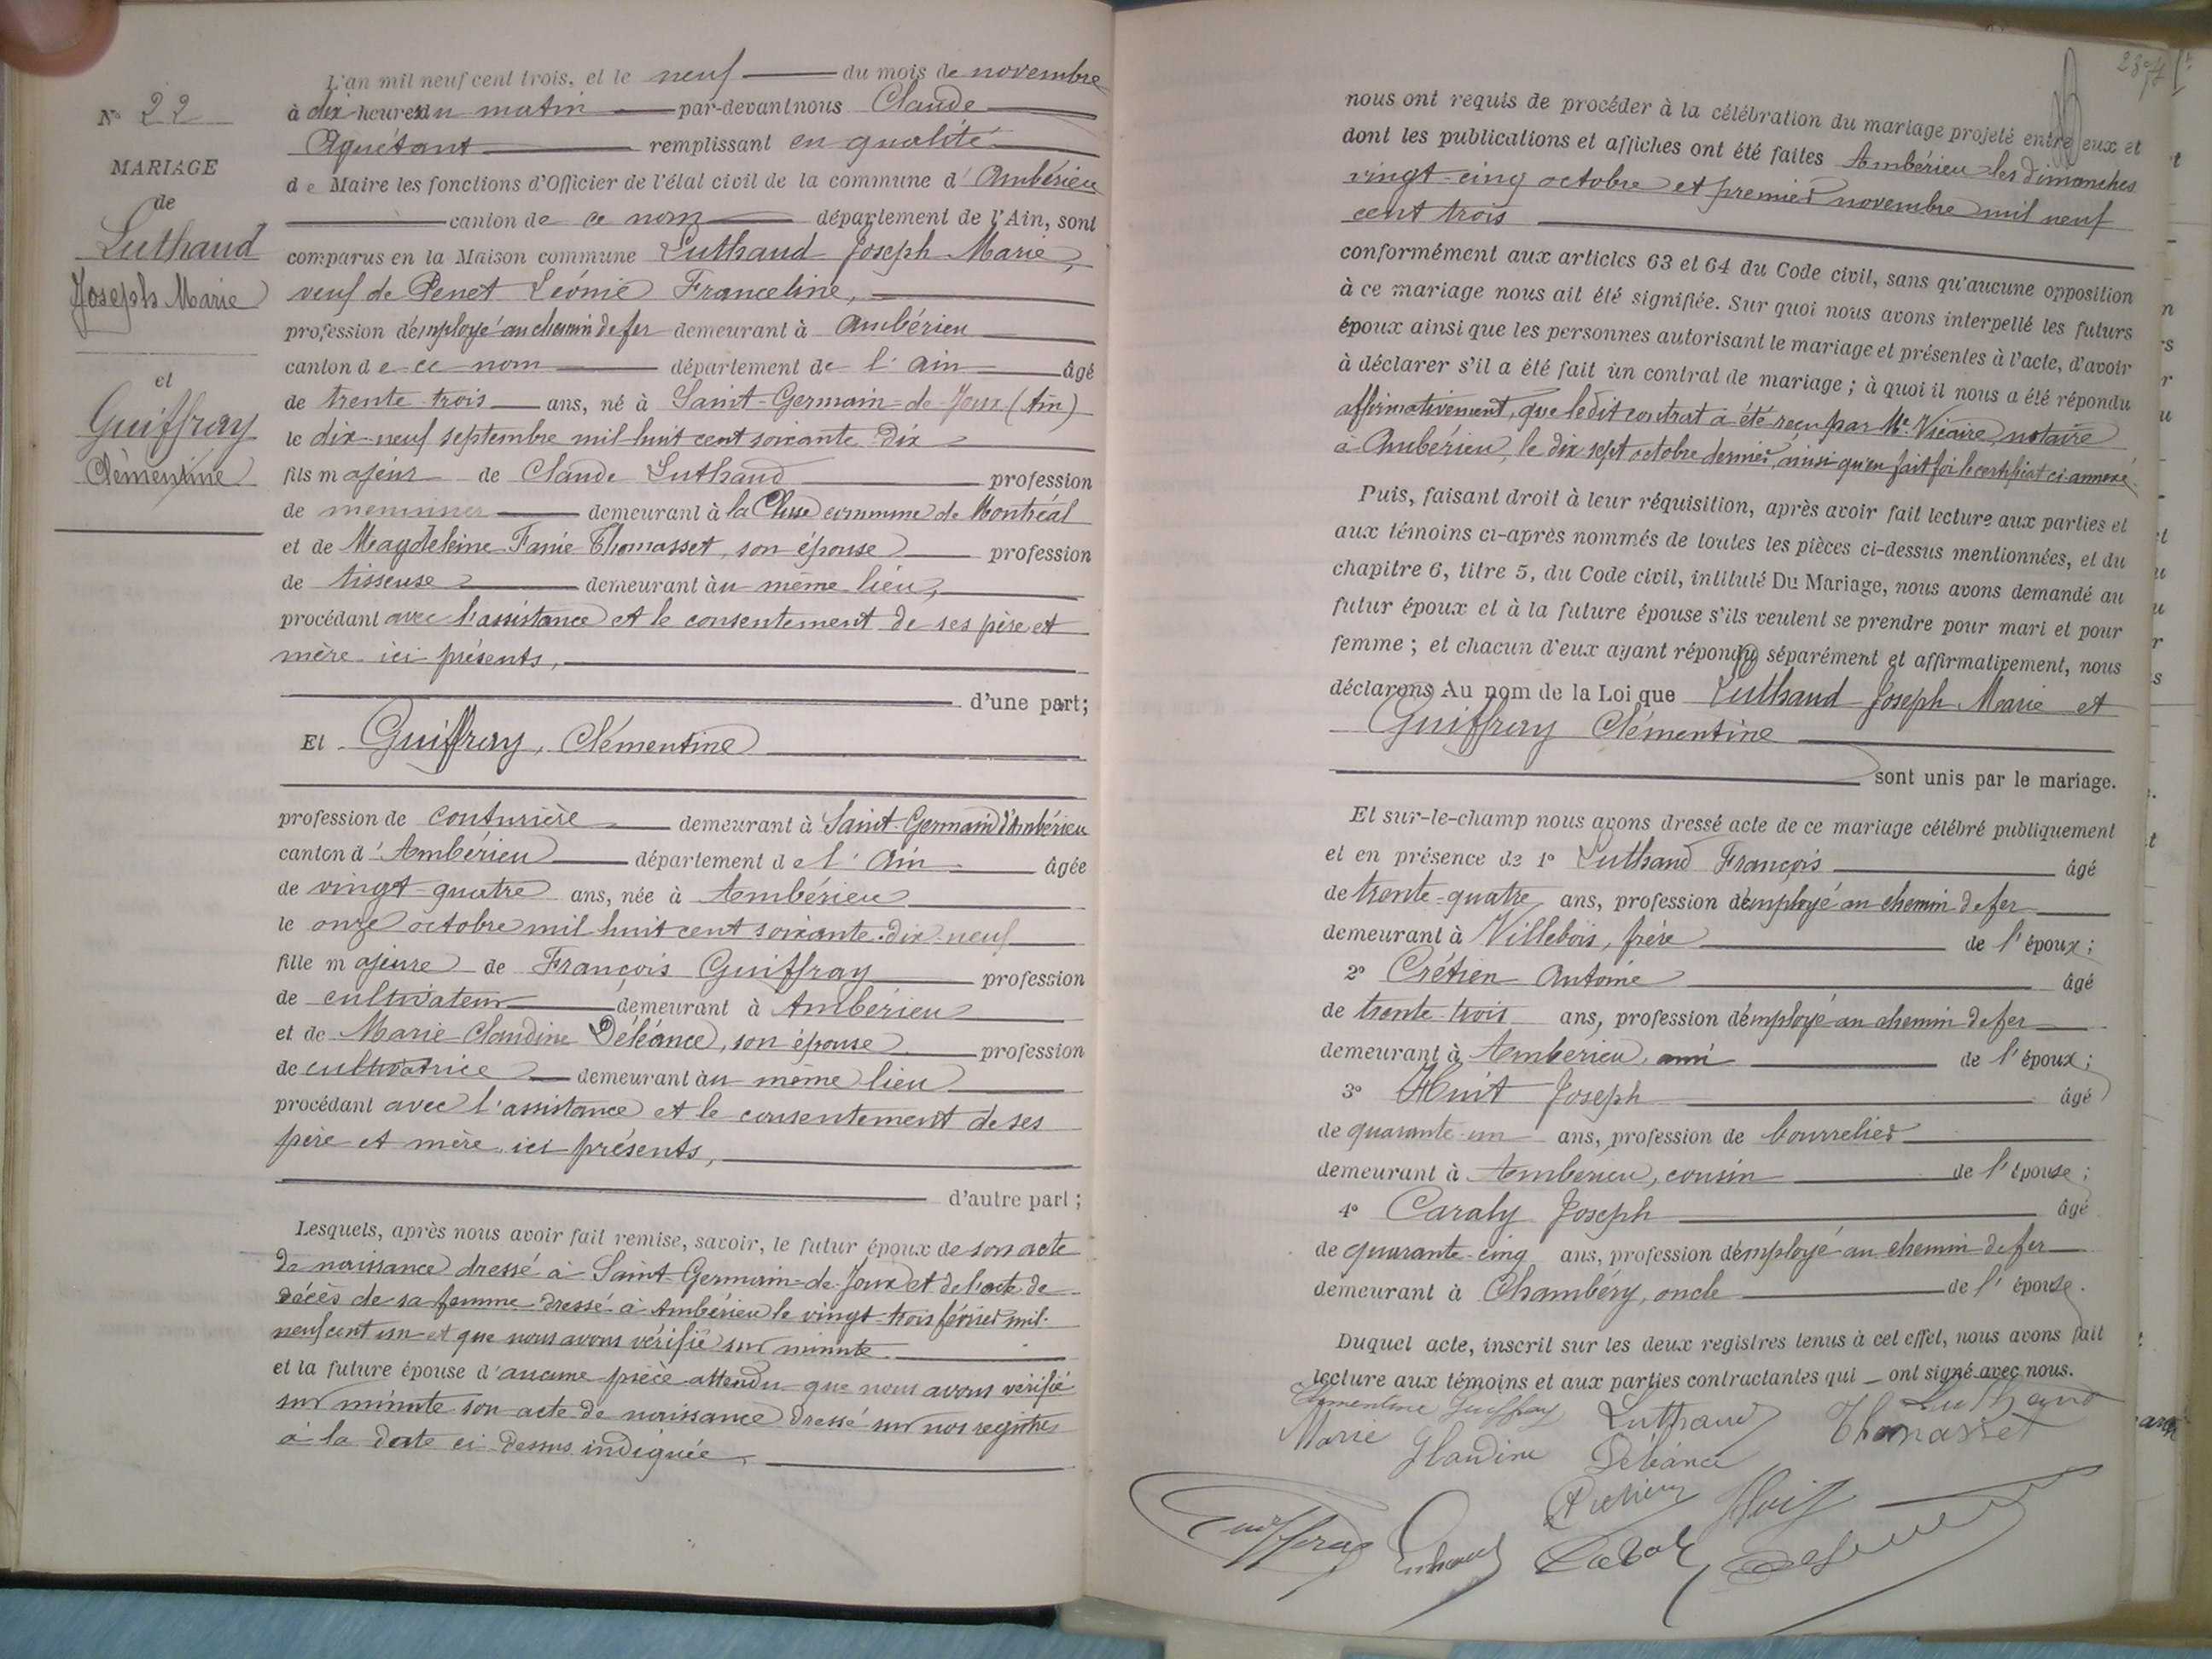 L'an mil neuf cent trois, et le neuf du mois de novembre
à dix heures du matin par-devant nous Claude
Aguétant remplissant en qualité
de Maire les fonctions d'Officier de l'état civil de la commune d'Ambérieu
canton de ce nom département de l'Ain, sont
comparus en la Maison commune Luthaud Joseph Marie,
veuf de Penet Léonie Franceline,
profession d'employé au chemin de fer demeurant à Ambérieu
canton de ce nom département de l'Ain âgé
de trente trois ans, né à Saint-Germain-de-Joux (Ain)
le dix-neuf septembre mil huit cent soixante dix
fils majeur de Claude Luthaud profession
de menuisier demeurant à la Cluse commune de Montréal
et de Magdeleine Fanie Thomasset, son épouse profession
de tisseuse demeurant au même lieu,
procédant avec l'assistance et le consentement de ses père et
mère ici présents,
d'une part;
Et Guiffray, Clémentine
profession de couturière demeurant à Saint-Germain d'Ambérieu
canton d'Ambérieu département de l'Ain âgée
de vingt-quatre ans, née à Ambérieu
le onze octobre mil huit cent soixante-dix-neuf
fille majeure de François Guiffray profession
de cultivateur demeurant à Ambérieu
et de Marie Claudine Déléance, son épouse profession
de cultivatrice demeurant au même lieu
procédant avec l'assistance et le consentement de ses
père et mère ici présents,
d'autre part;
Lesquels, après nous avoir fait remise, savoir, le futur époux de son acte
de naissance dressé à Saint-Germain-de-Joux et de l'acte de
décès de sa femme dressé à Ambérieu le vingt-trois février mil
neuf cent un et que nous avons vérifié sur minute
et la future épouse d'aucune pièce attendu que nous avons vérifié
sur minute son acte de naissance dressé sur nos registres
à la date ci dessus indiquée.
N° 22
MARIAGE
de
Luthaud
Joseph Marie
et
Guiffray
Clémentine
nous ont requis de procéder à la célébration du mariage projeté entre eux et
dont les publications et affiches ont été faites Ambérieu les dimanches
vingt-cinq octobre et premier novembre mil neuf
cent trois
conformément aux articles 63 et 64 du Code civil, sans qu'aucune opposition
à ce mariage nous ait été signifiée. Sur quoi nous avons interpellé les futurs
époux ainsi que les personnes autorisant le mariage et présentes à l'acte, d'avoir
à déclarer s'il a été fait un contrat de mariage; à quoi il nous a été répondu
affirmativement, que ledit contrat a été reçu par Me Vicaire, notaire
à Ambérieu, le dix sept octobre dernier, ainsi qu'en fait foi le certificat ci-annexé.
Puis, faisant droit à leur réquisition, après avoir fait lecture aux parties et
aux témoins ci-après nommés de toutes les pièces ci-dessus mentionnées, et du
chapitre 6, titre 5, du Code civil, intitulé Du Mariage, nous avons demandé au
futur époux et à la future épouse s'ils veulent se prendre pour mari et pour
femme; et chacun d'eux ayant répondu séparément et affirmativement, nous
déclarons Au nom de la Loi que Luthaud Joseph Marie et
Guiffray Clémentine
sont unis par le mariage.
Et sur-le-champ nous avons dressé acte de ce mariage célébré publiquement
et en présence de 1° Luthaud François âgé
de trente-quatre ans, profession d'employé au chemin de fer
demeurant à Villebois, frère de l'époux;
2° Crétien Antoine âgé
de trente-trois ans, profession d'employé au chemin de fer
demeurant à Ambérieu, ami de l'époux;
3° Huit Joseph âgé
de quarante-un ans, profession de bourrelier
demeurant à Ambérieu, cousin de l'épouse;
4° Caraly Joseph âgé
de quarante-cinq ans, profession d'employé au chemin de fer
demeurant à Chambéry, oncle de l'épouse.
Duquel acte, inscrit sur les deux registres tenus à cet effet, nous avons fait
lecture aux témoins et aux parties contractantes qui ont signé avec nous.
Clémentine Guiffray Luthaud Luthaud
Marie Glaudine Déléance Thomasset
Huit
Guiffray Luthaud